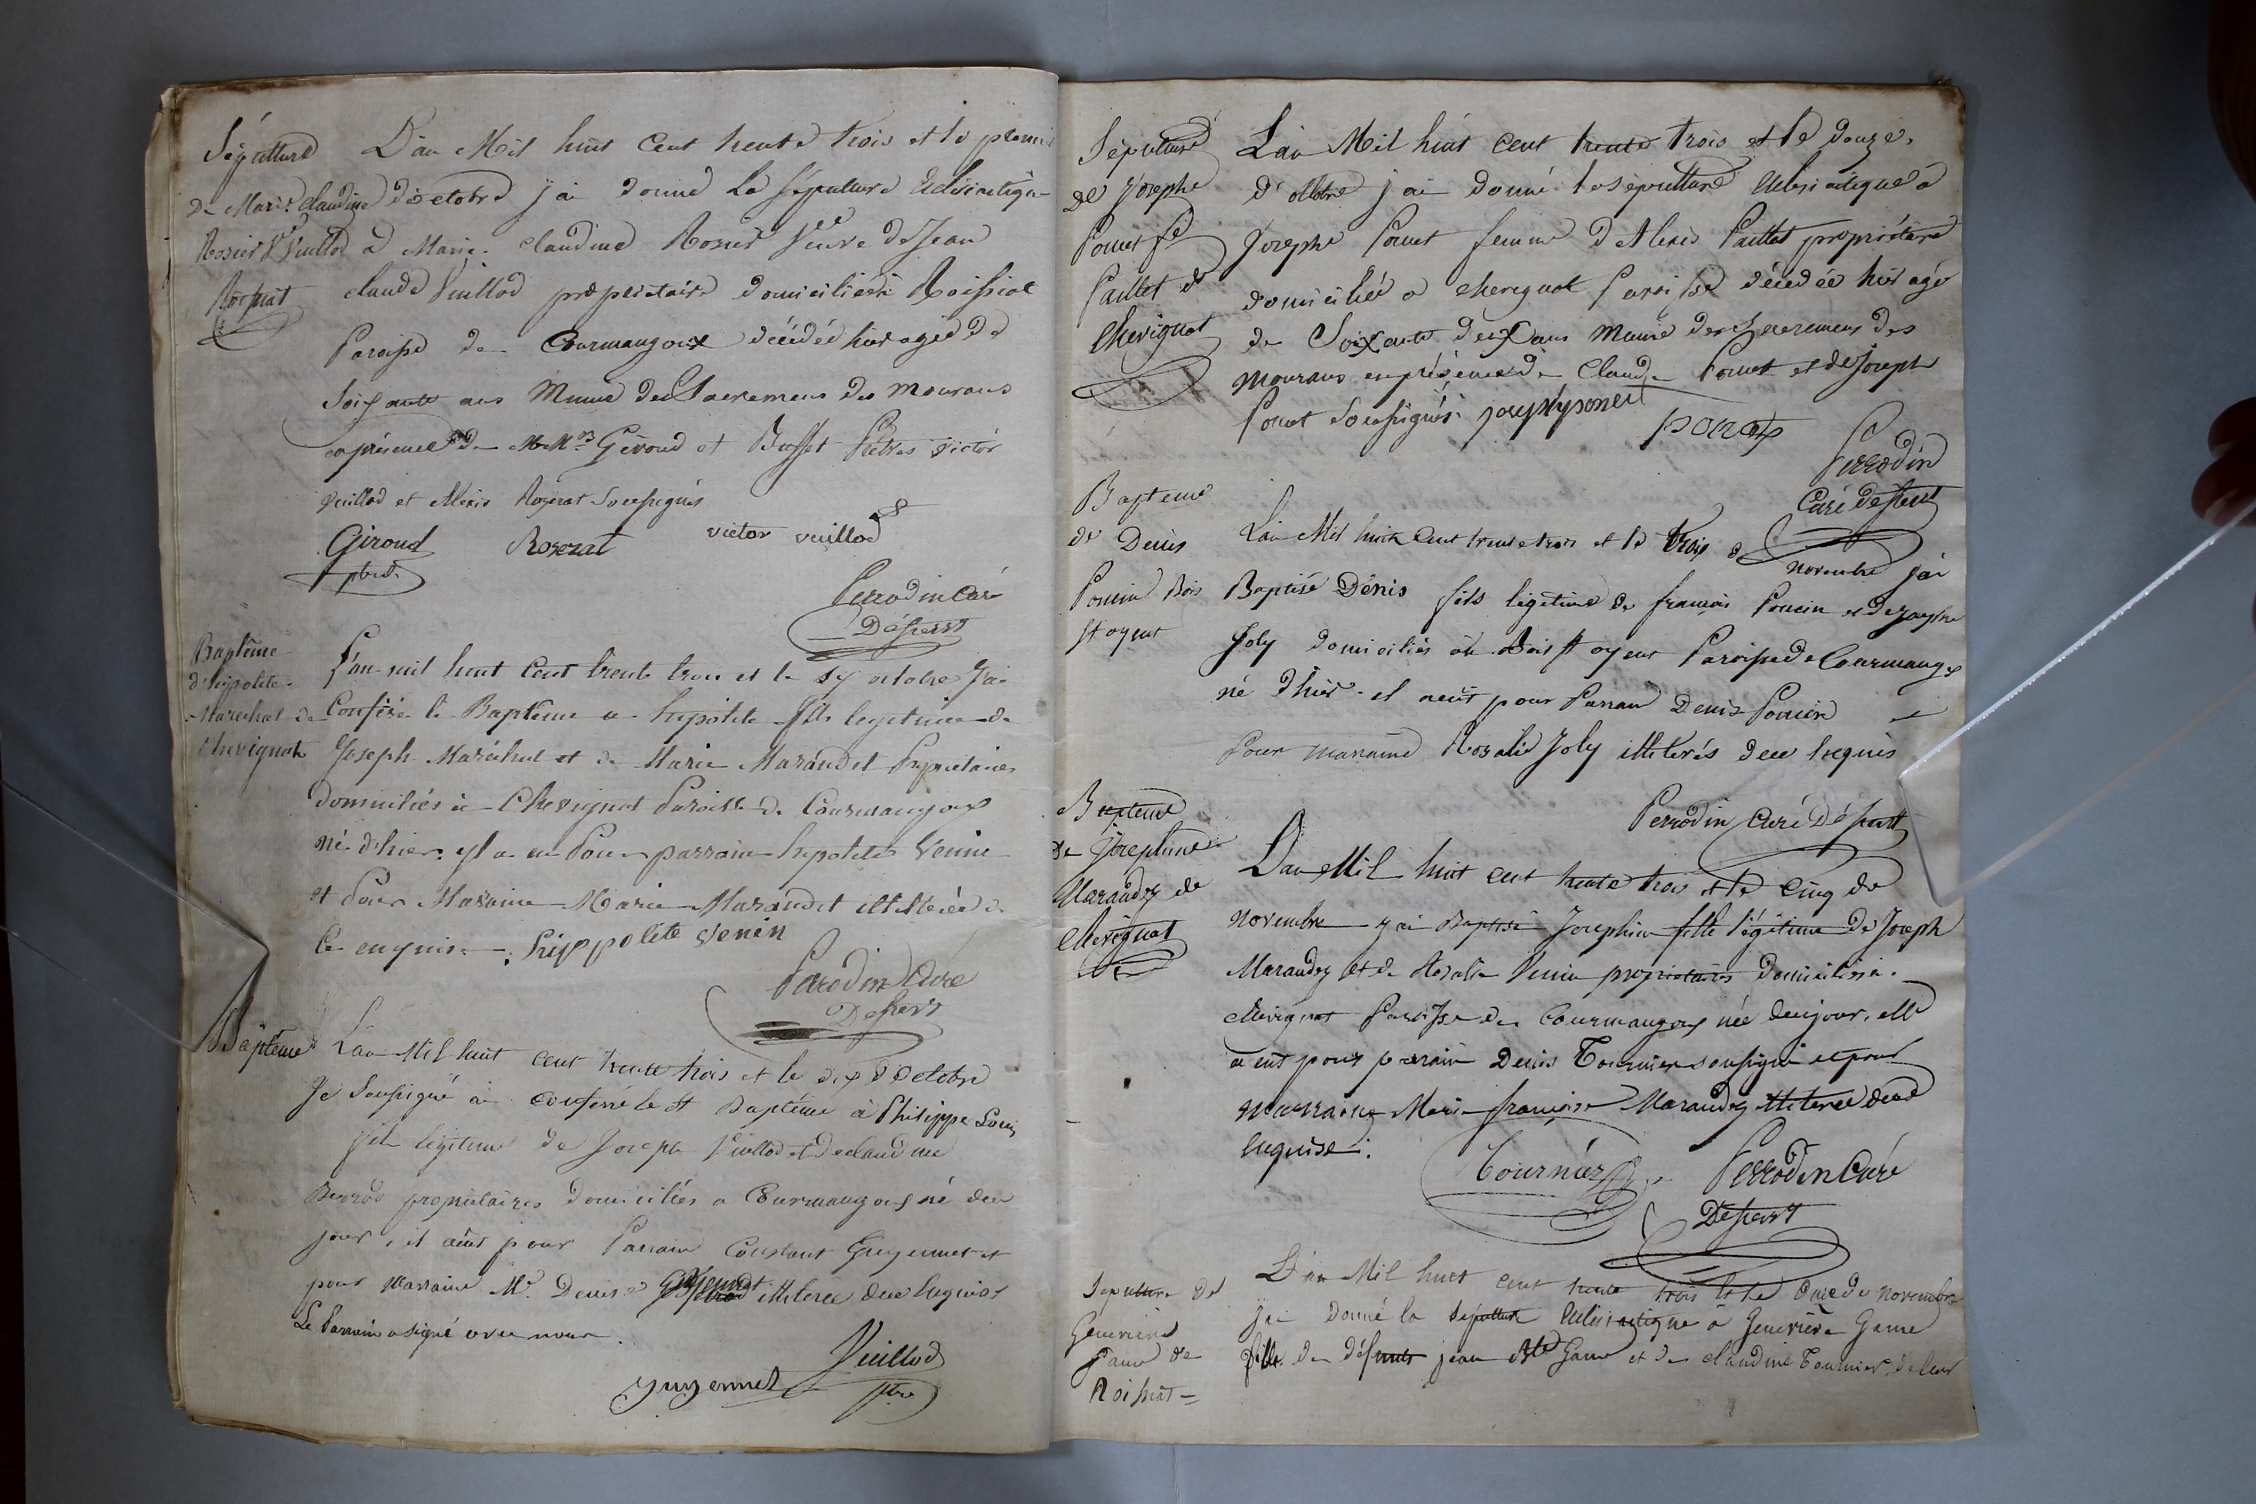 Sépulture
de Marie claudine
Rosier Ve Vuillod
Roissiat
L'an Mil huit Cent trente trois et le premier
d'octobre j'ai donné la sépulture Eclésiastique
a Marie claudine Rosier Veuve de Jean
claude Vuillod propriétaire domiciliée à Roissiat
Paroisse de Courmangoux décédée hier agée de
Soixante ans Munie des Sacremens des mourans
en présence de MMrs Giroud et Buffet Prêtres victor
vuillod et Alexis Rozerat Soussignés
Giroud Rozerat victor vuillod
ptre
Perrodin Curé
Desserv
Baptême
d'hipolite
Marechal de
Chevignat
L'an mil huit Cent trente trois et le sy octobre J'ai
Conféré le Baptême a hipolite fils legitime de
Joseph Maréchal et de Marie Marandet Propriétaires
domiciliés à Chevignat Paroisse de Courmangoux
né d'hier. yl a eu Pour parrain hipolite Venin
et Pour Maraine Marie Marandet illiterée de
Ce enquise. hippolite venin
Perrodin Curé
Desserv
Baptême
L'an Mil huit cent trente trois et le dix d'octobre
Je Soussigné ai conféré le st Baptême à Philippe Louis
fils légitime de Joseph Vuillod et de claudine
propriétaires domiciliés a Courmangoux né du
jour, il a eut pour Parrain Constant Guyennet et
pour marraine Me Denise illiteree de ce enquise
Le Parrain a signé avec nous.
Vuillod
guyennet ptre
Sépulture
de Josephe
Ponet fe
Paillot de
Chevignat
L'an Mil huit cent trente trois et le douze
d'octobre j'ai donné la sépulture eclesiastique a
Josephe Ponet femme d'Alexis Paillot propriétaire
domiciliée a chevignat Paroisse décédée hier agée
de Soixante deux ans Munie des Sacremens des
mourans en présence de Claude Ponet et de Joseph
Ponet Soussignés. joseph ponet
ponet
Perrodin
Curé desserv
Bapteme
de Denis
Poncin Bois
st oyent
L'an Mil huit Cent trente trois et le trois de
novembre j'ai
Baptisé Denis fils légitime de françois Poncin et de Josephe
Joly domiciliés au Bois st oyent Paroisse de Courmangx
né d'hier et a eut pour Parrain Denis Poncin et
Pour marraine Rosalie Joly illiterés de ce enquis
Perrodin Curé Désserv
Bapteme
de Josephine
Marandey de
chevignat
L'an Mil huit cent trente trois et le cinq de
novembre j'ai Baptisé Josephine fille légitime de Joseph
Marandey et de Rosalie Venin propriétaires domiciliés à
chevignat Paroisse de Courmangoux née du jour, elle
a eut pour parrain Denis Tournier soussigné et pour
marraine Marie françoise Marandey illiteree de ce
enquise.
Tournier Perrodin Curé
Desserv
Sepulture de
Geneviève
Game de
Roissiat
L'an Mil huit cent trente trois et le onze de novembre
j'ai donné la sépulture eclésiastique à Geneviève Game
fille de défunts jean Bte Game et de claudine Tournier de leur